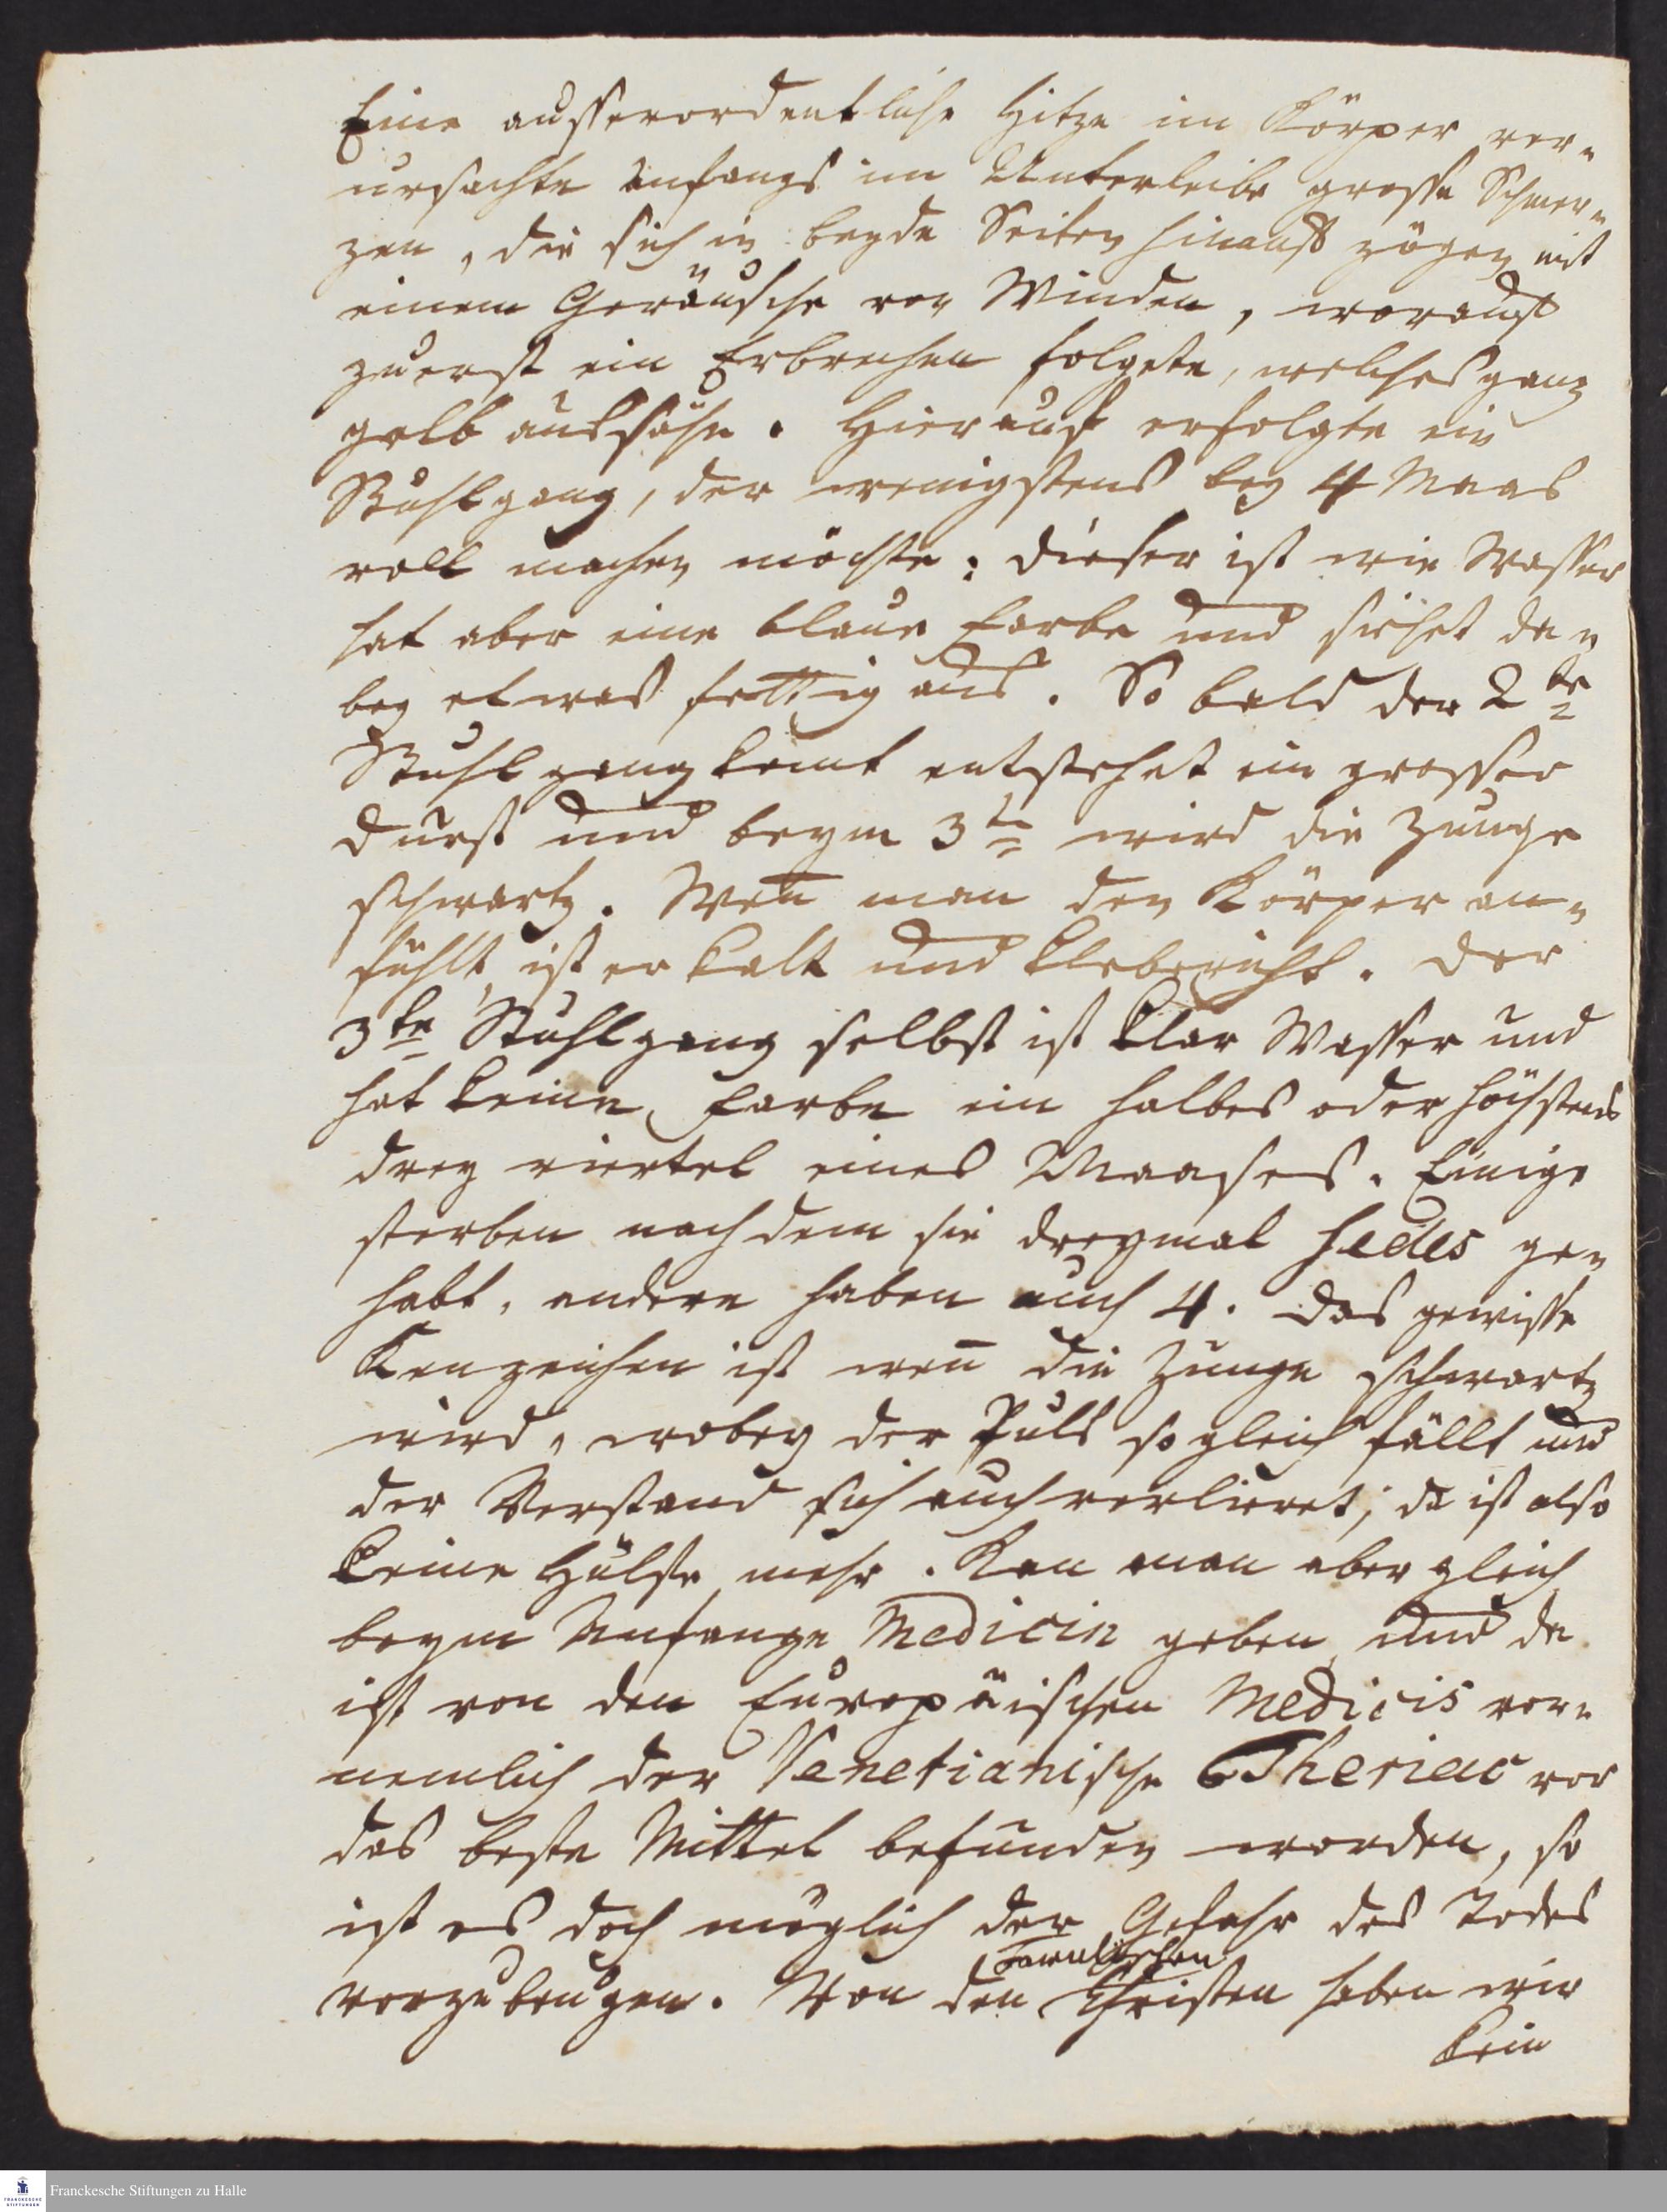 Eine ausserordentliche Hitze im Körper ver=
ursachte Anfangs im Unterleibe grosse Schmer=
zen, die sich in beyde Seiten hinauf zögen mit
einem Geräusche von Winden, worauf
zuerst ein Erbrechen folgete, welches ganz
gelb aussähe. Hierauf erfolgte ein
Stuhlgang, der wenigstens bey 4 Maas
voll machen möchte: dieser ist wie Wasser
hat aber eine blaue Farbe und siehet da=
bey etwas fettig aus. So bald der 2te
Stuhlgang komt entstehet ein grosser
Durst und beym 3te wird die Zunge
schwartz. Wen̅ man den Körper an=
fühlt, ist er kalt und klebericht. Der
3te Stuhlgang selbst ist klar Wasser und
hat keine Farbe ein halbes oder höchstens
drey viertel eines Maases. Einige
sterben nachdem sie dreymal sedes ge=
habt, andere haben auch 4. Das gewisse
Kenzeichen ist wen̅ die Zunge schwartz
wird, wobey der Puls so gleich fällt und
der Verstand sich auch verlieret; da ist also
keine Hülfe mehr. Kan man aber gleich
beym Anfange Medicin geben und da
ist von den Europäischen Medicis vor=
nemlich der Venetianische Theriac vor
das beste Mittel befunden worden, so
ist es doch möglich der Gefahr des Todes
vorzubeugen. Von den Tamulischen Christen haben wir
kein
Franckesche Stiftungen zu Halle
FRANCKESCHE STIFTUNGEN